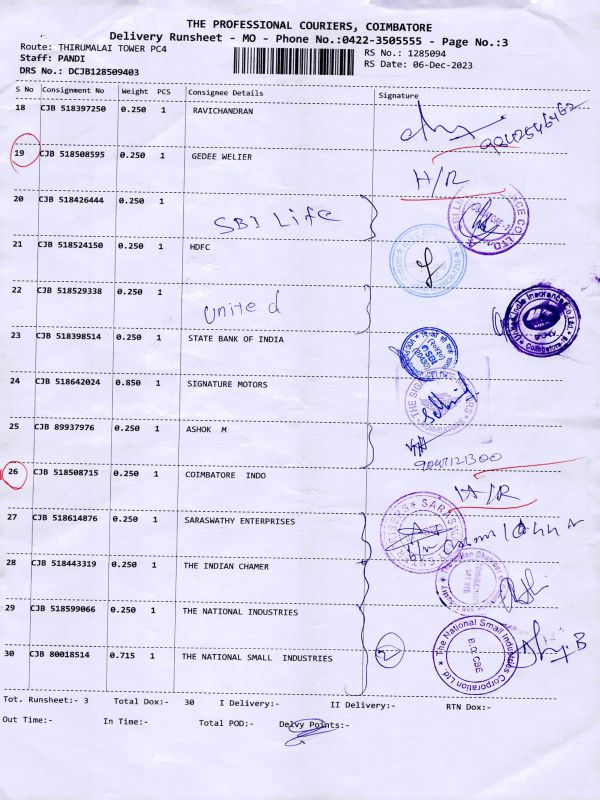 THE PROFESSIONAL COURIERS, COIMBATORE
Delivery Runsheet - MO - Phone No.:0422-3505555 - Page No.:3
Route: THIRUMALAI TOWER PC4
RS No.: 1285094
Staff: PANDI
RS Date: 06-Dec-2023
DRS No.: DCJB128509403
S No Consignment No Weight PCS Consignee Details Signature
18 CJB 518397250 0.250 1 RAVICHANDRAN
19 CJB 518508595 0.250 1 GEDEE WELIER H/R
20 CJB 518426444 0.250 1 SBI Life
21 CJB 518524150 0.250 1 HDFC
22 CJB 518529338 0.250 1 United
23 CJB 518398514 0.250 1 STATE BANK OF INDIA
24 CJB 518642024 0.850 1 SIGNATURE MOTORS
25 CJB 89937976 0.250 1 ASHOK M
26 CJB 518508715 0.250 1 COIMBATORE INDO H/R
27 CJB 518614876 0.250 1 SARASWATHY ENTERPRISES
28 CJB 518443319 0.250 1 THE INDIAN CHAMER
29 CJB 518599066 0.250 1 THE NATIONAL INDUSTRIES
30 CJB 80018514 0.715 1 THE NATIONAL SMALL INDUSTRIES 2
The National Small Industries Corporation Ltd.
B.O. CBE
Tot. Runsheet:- 3 Total Dox:- 30 I Delivery:- II Delivery:- RTN Dox:-
Out Time:- In Time:- Total POD:- Delvy Points:-